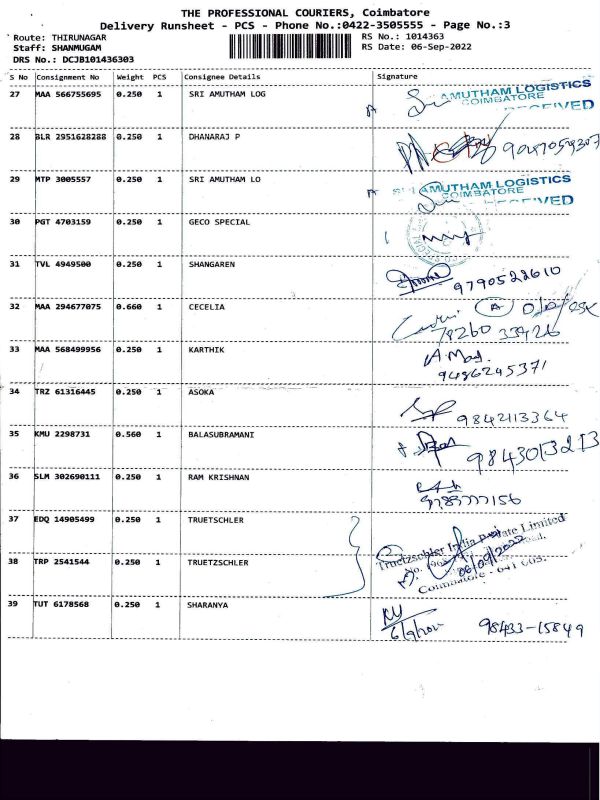 THE PROFESSIONAL COURIERS, Coimbatore
Delivery Runsheet - PCS - Phone No.:0422-3505555 - Page No.:3
Route: THIRUNAGAR RS No.: 1014363
Staff: SHANMUGAM RS Date: 06-Sep-2022
DRS No.: DCJB101436303
S No Consignment No Weight PCS Consignee Details Signature
27 MAA 566755695 0.250 1 SRI AMUTHAM LOG AMUTHAM LOGISTICS
COIMBATORE
28 BLR 2951628288 0.250 1 DHANARAJ P
29 MTP 3005557 0.250 1 SRI AMUTHAM LO AMUTHAM LOGISTICS
COIMBATORE
30 PGT 4703159 0.250 1 GECO SPECIAL
31 TVL 4949500 0.250 1 SHANGAREN 9790522610
32 MAA 294677075 0.660 1 CECELIA A
78260 33426
33 MAA 568499956 0.250 1 KARTHIK
9486245371
34 TRZ 61316445 0.250 1 ASOKA 9842113364
35 KMU 2298731 0.560 1 BALASUBRAMANI 9843013213
36 SLM 302690111 0.250 1 RAM KRISHNAN
9789777156
37 EDQ 14905499 0.250 1 TRUETSCHLER Truetzschler India Private Limited
38 TRP 2541544 0.250 1 TRUETZSCHLER 06/09/2022
Coimbatore - 641
39 TUT 6178568 0.250 1 SHARANYA 98433-15849